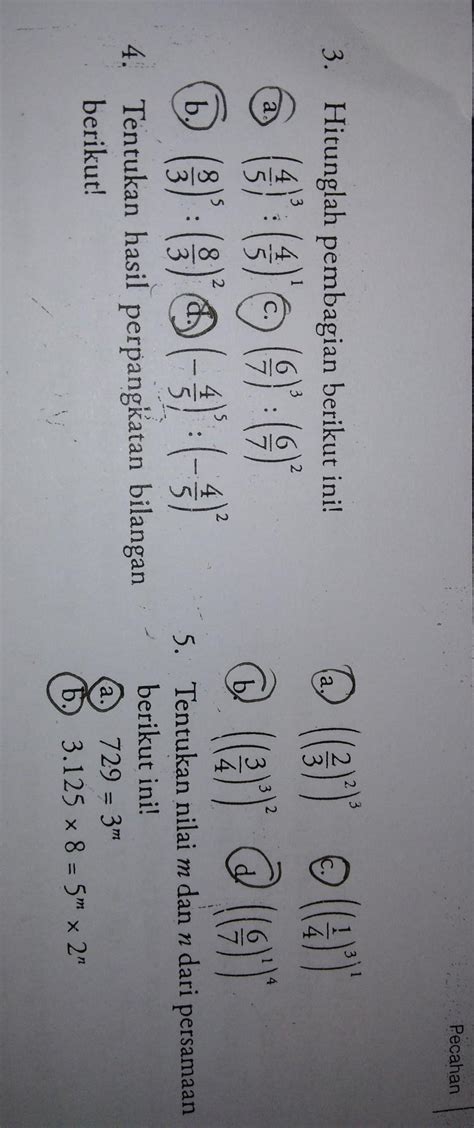 Pecahan
3. Hitunglah pembagian berikut ini!
a. (4/5)³ : (4/5)¹ c. (6/7)³ : (6/7)²
b. (8/3)⁵ : (8/3)² d. (-4/5)⁵ : (-4/5)²
4. Tentukan hasil perpangkatan bilangan
berikut!
a. ((2/3)²)³ c. ((1/4)³)¹
b. ((3/4)³)² d. ((6/7)¹)⁴
5. Tentukan nilai m dan n dari persamaan
berikut ini!
a. 729 = 3ᵐ
b. 3.125 × 8 = 5ᵐ × 2ⁿ